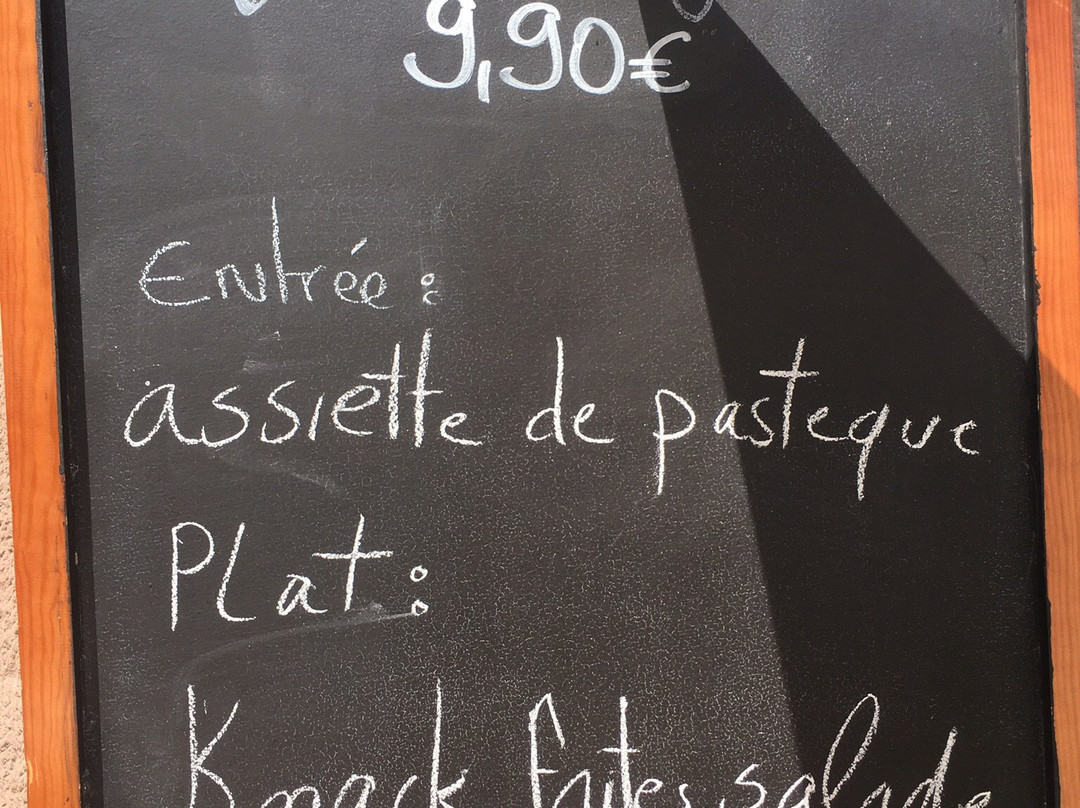 9,90€
Entrée :
assiette de pasteque
Plat :
Knack frites salade